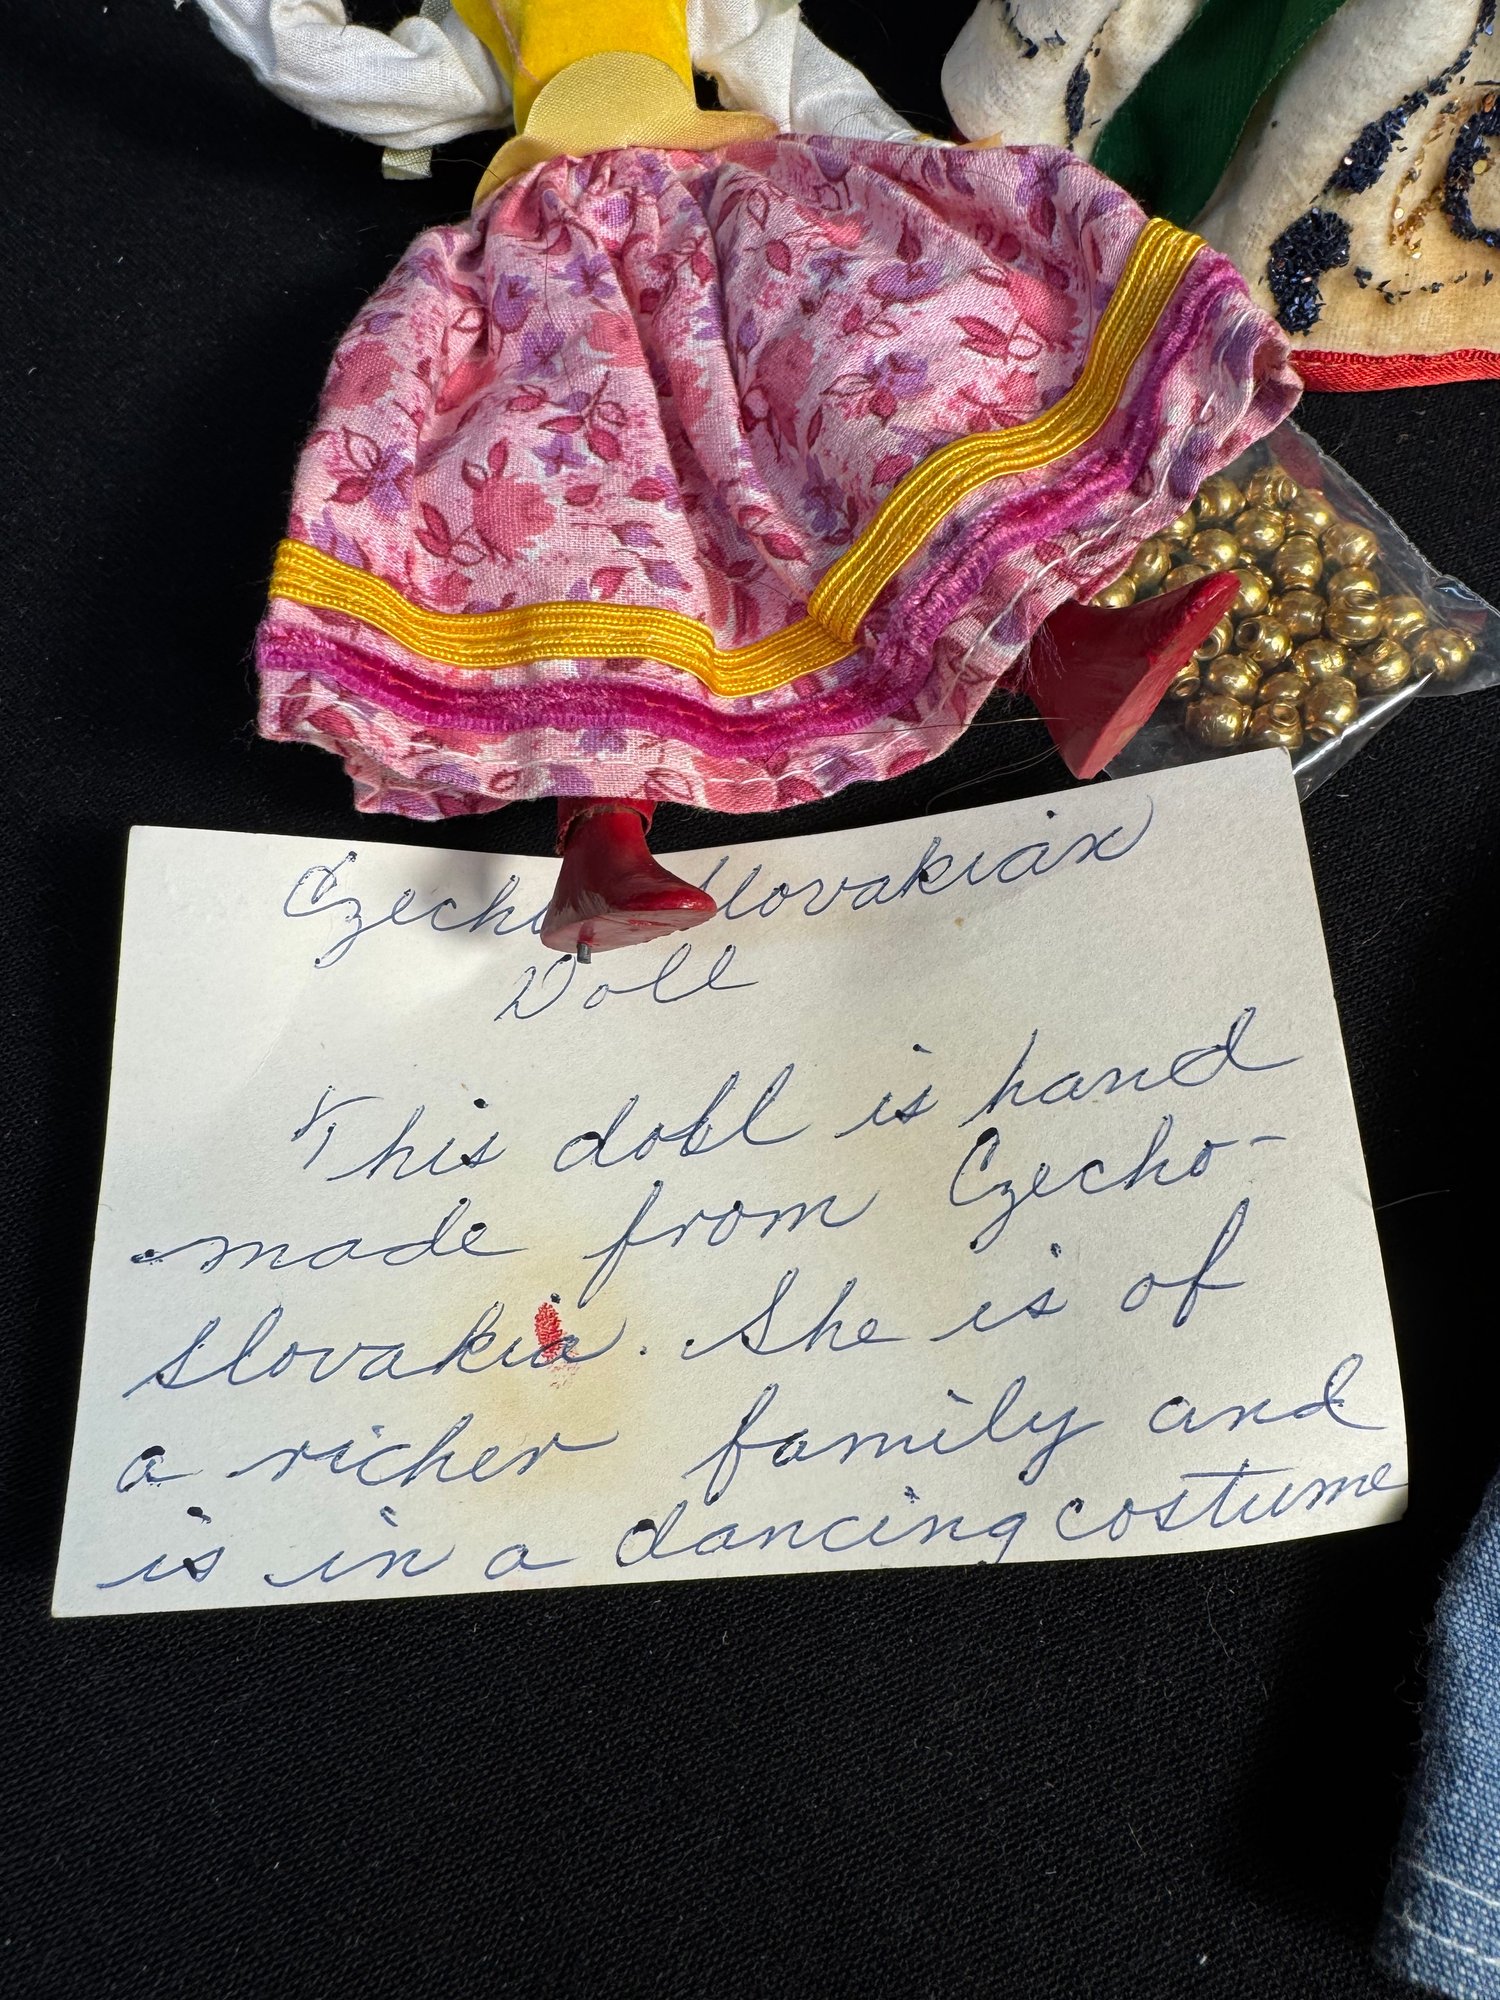 Czecho Slovakian
Doll
This doll is hand
made from Czecho-
slovakia. She is of
a richer family and
is in a dancing costume